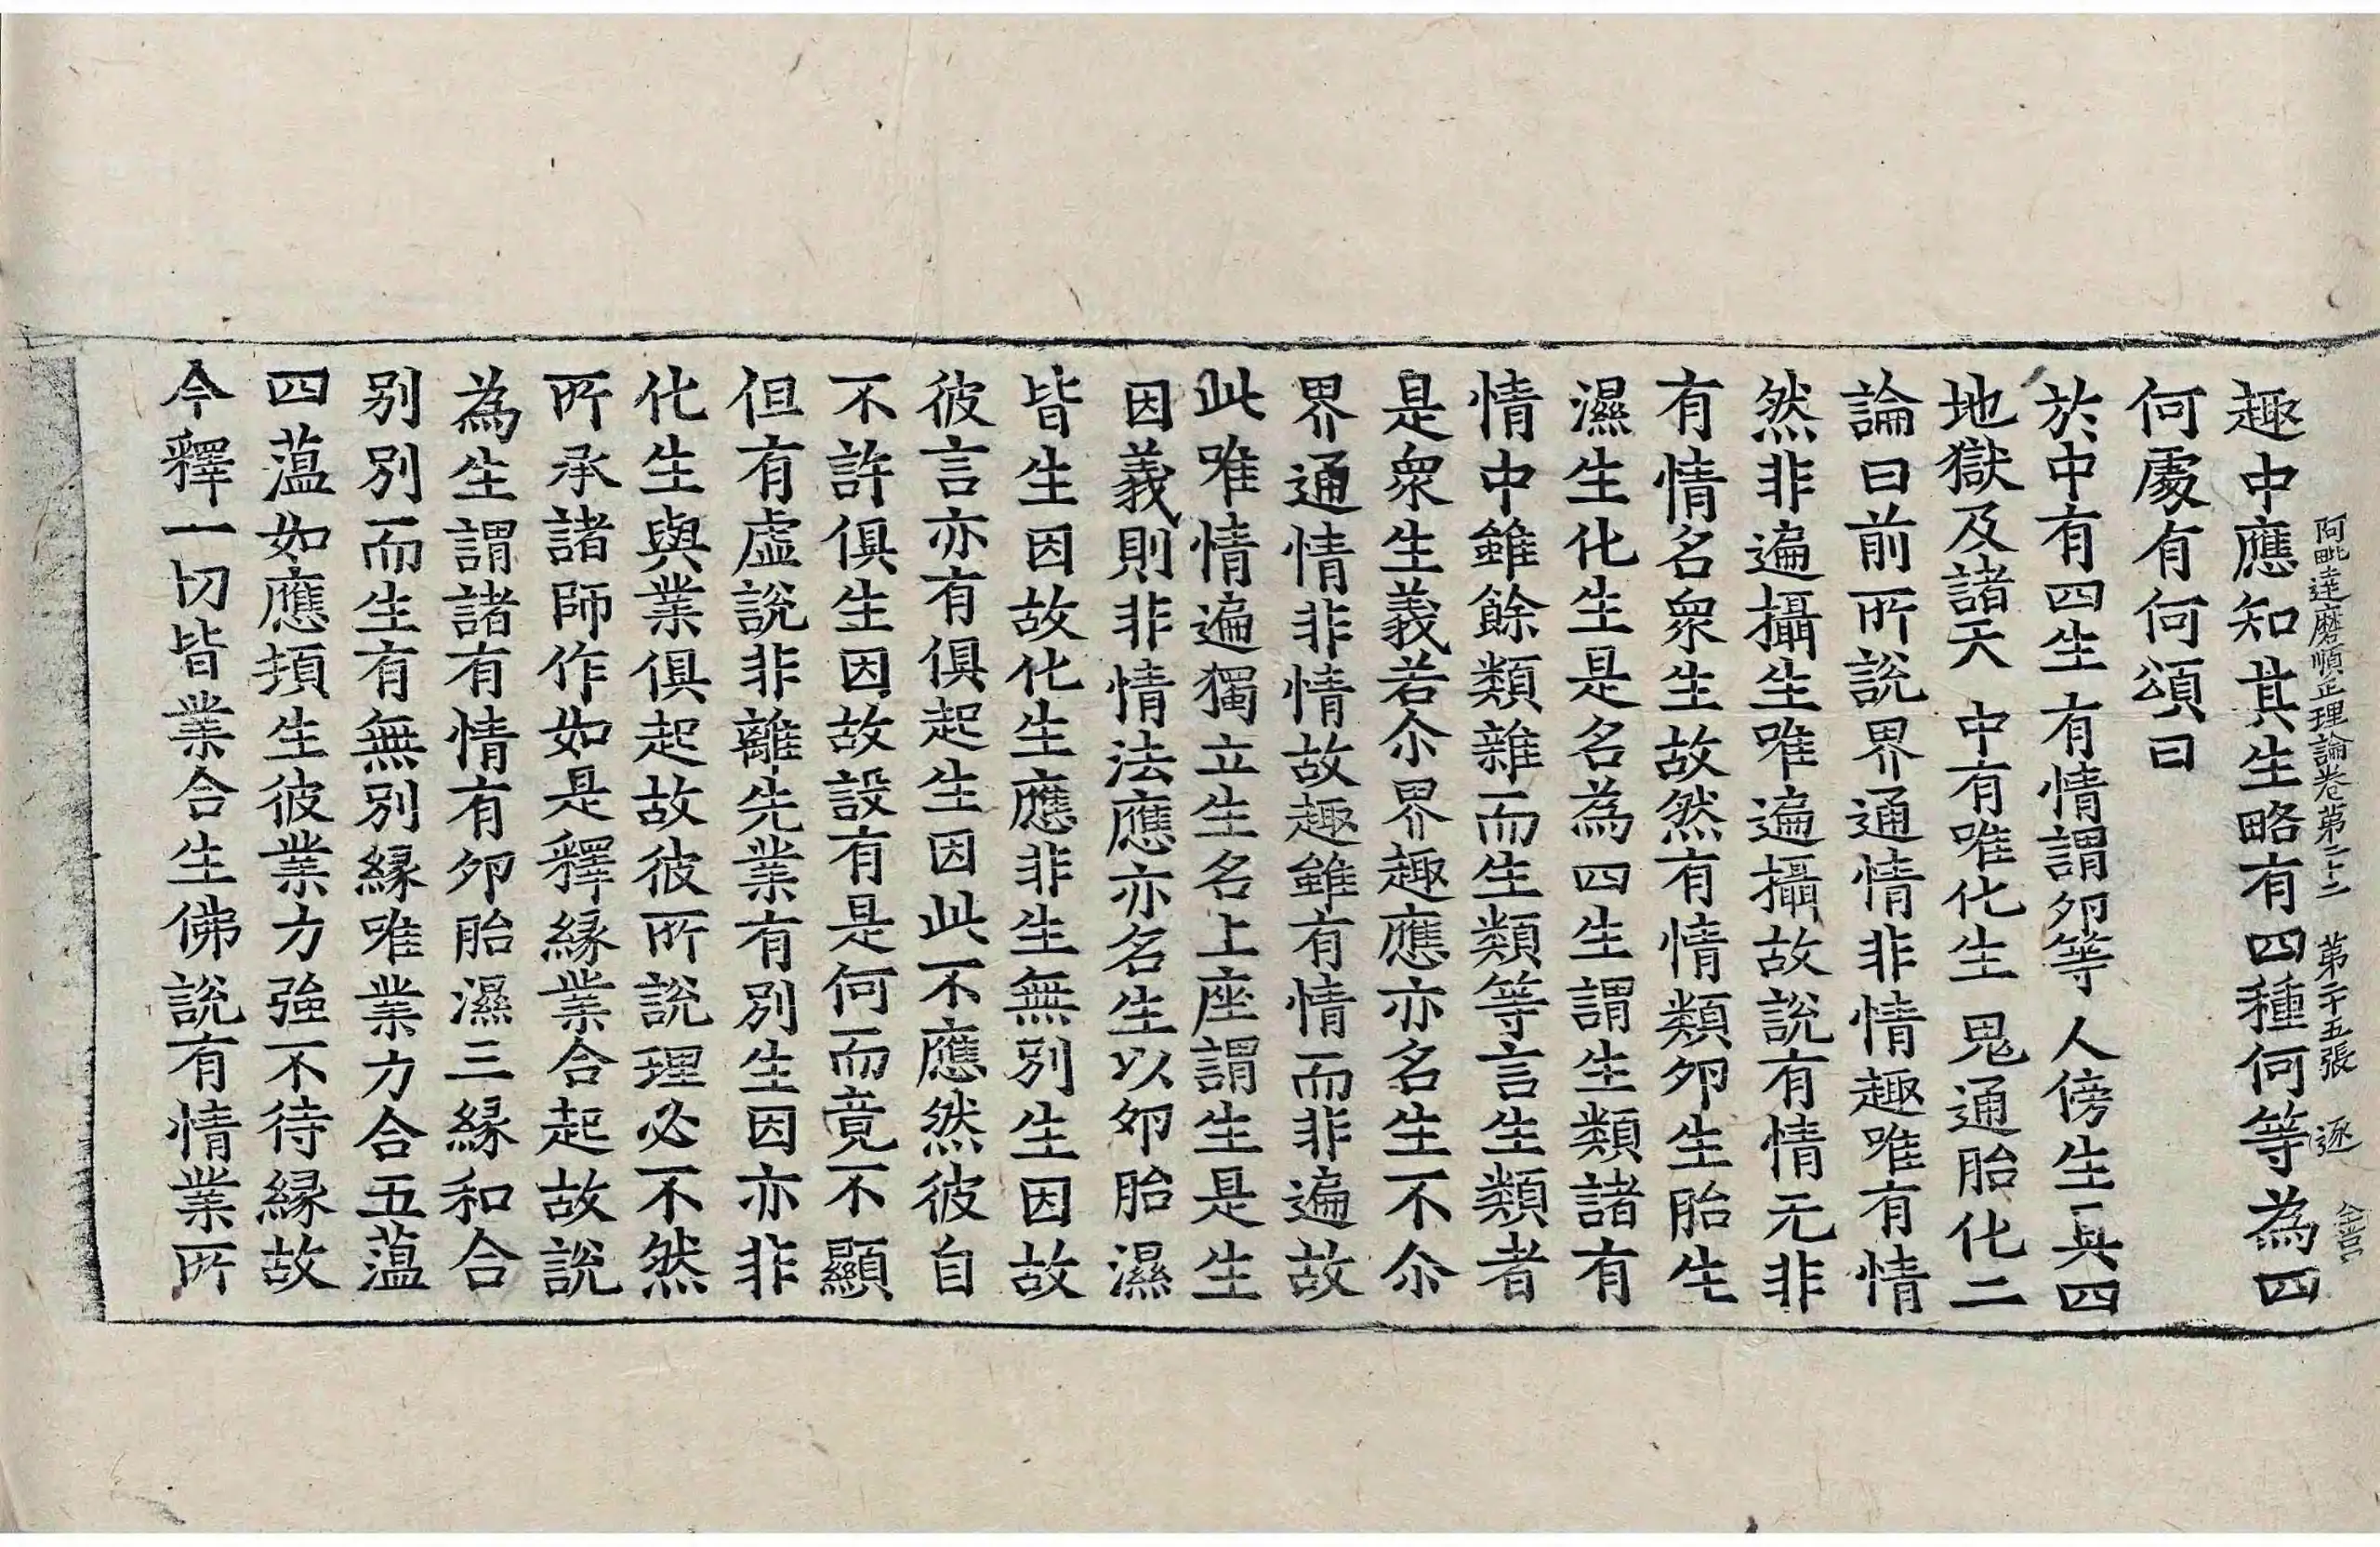 阿毗達磨順正理論卷第二十二 第二十五張 逐
趣中應知其生略有四種何等為四
何處有何頌曰
於中有四生 有情謂卵等 人傍生具四
地獄及諸天 中有唯化生 鬼通胎化二
論曰前所說界通情非情趣唯有情
然非遍攝生唯遍攝故說有情无非
有情名眾生故然有情類卵生胎生
濕生化生是名為四生謂生類諸有
情中雖餘類雜而生類等言生類者
是眾生義若尒界趣應亦名生不尒
界通情非情故趣雖有情而非遍故
此唯情遍獨立生名上座謂生是生
因義則非情法應亦名生以卵胎濕
皆生因故化生應非生無別生因故
彼言亦有俱起生因此不應然彼自
不許俱生因故設有是何而竟不顯
但有虛說非離先業有別生因亦非
化生與業俱起故彼所說理必不然
所承諸師作如是釋緣業合起故說
為生謂諸有情有卵胎濕三緣和合
別別而生有無別緣唯業力合五蘊
四蘊如應頓生彼業力強不待緣故
今釋一切皆業合生佛說有情業所